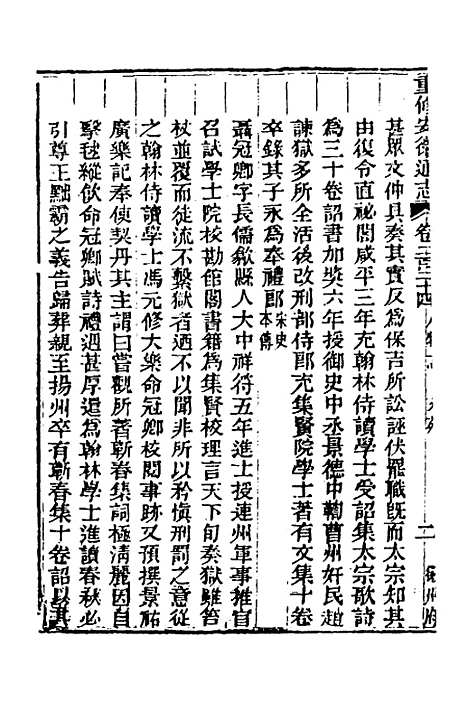 重修安徽通志 卷二百二十四 二 徽州府
甚眾文仲具奏其實反為保吉所訟誣伏罷職既而太宗知其
由復令直祕閣咸平三年充翰林侍讀學士受詔集太宗歌詩
為三十卷詔書加獎六年授御史中丞景德中鞫曹州奸民趙
諫獄多所全活後改刑部侍郎充集賢院學士著有文集十卷
卒錄其子永為奉禮郎宋史本傳
聶冠卿字長儒歙縣人大中祥符五年進士授連州軍事推官
召試學士院校勘館閣書籍為集賢校理言天下旬奏獄雖笞
杖並覆而徒流不繫獄者迺不以聞非所以矜慎刑罰之意從
之翰林侍讀學士馮元修大樂命冠卿檢閱事跡又預撰景祐
廣樂記奉使契丹其主謂曰嘗觀所著蘄春集詞極清麗因自
擊毬縱飲命冠卿賦詩禮遇甚厚還為翰林學士進讀春秋必
引尊王黜霸之義告歸葬親至揚州卒有蘄春集十卷詔以其